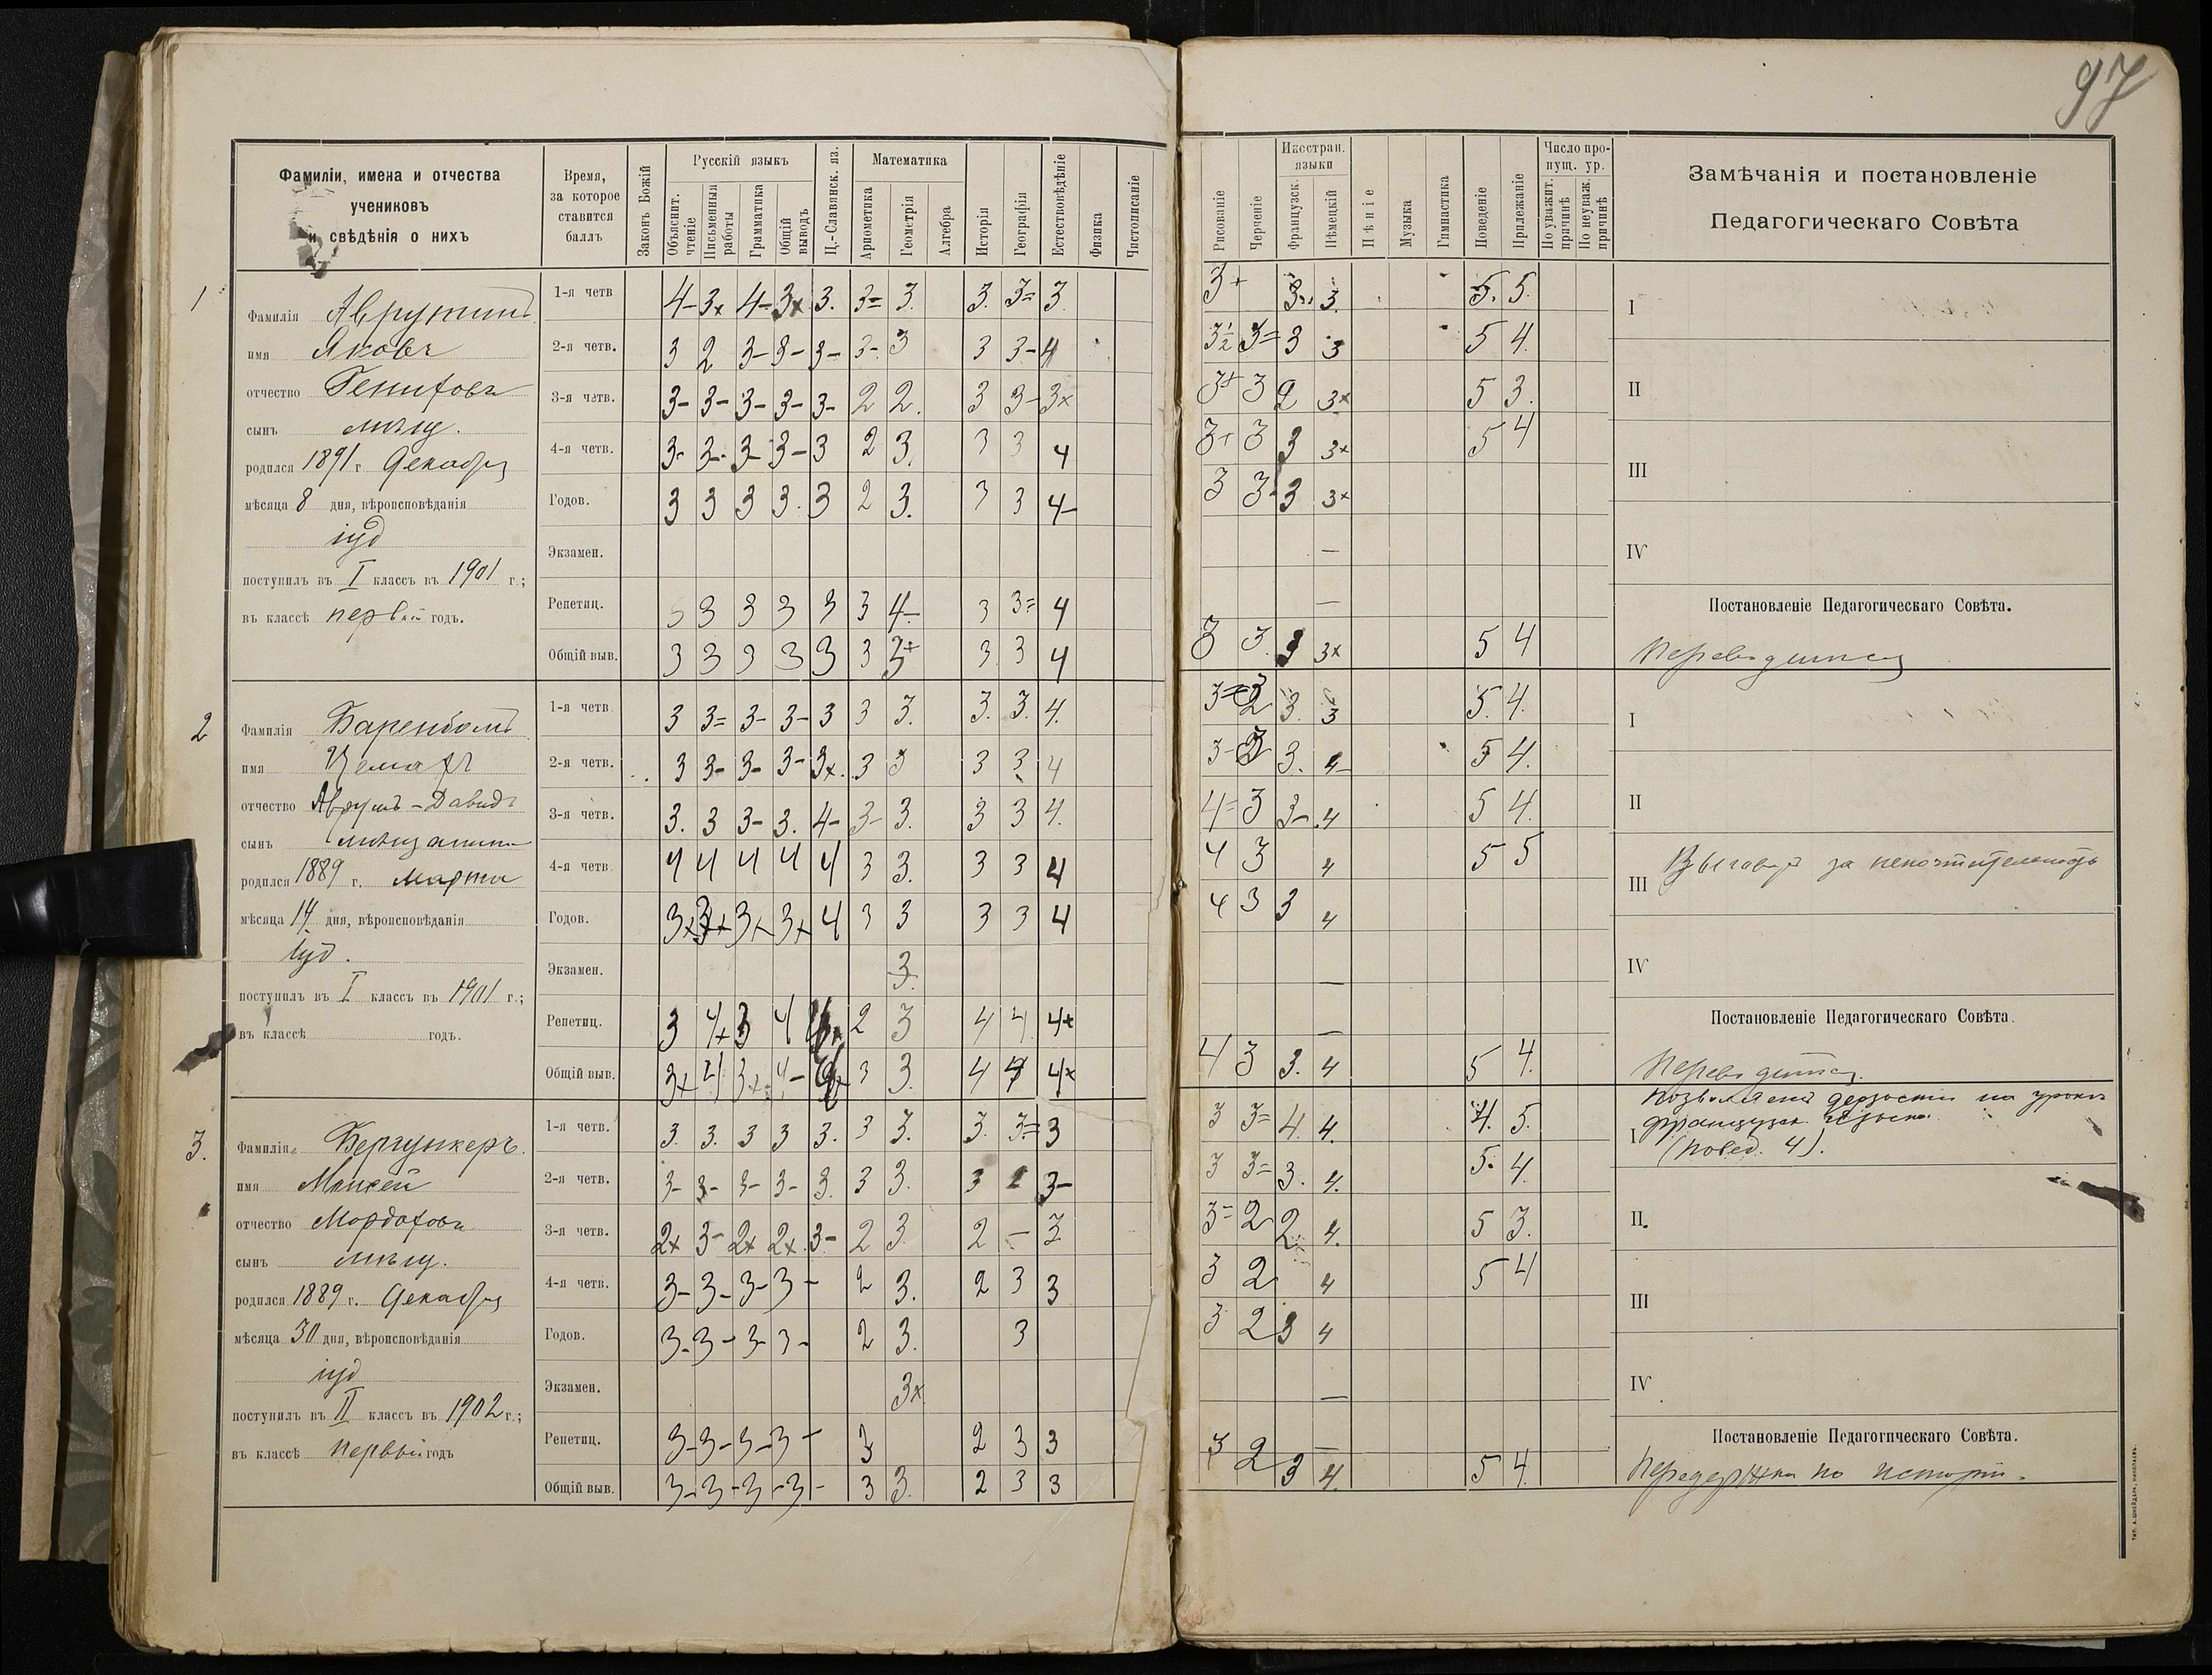 97
Фамиліи, имена и отчества
учениковъ
и свѣдѣнія о нихъ
Время,
за которое
ставится
баллъ
Законъ Божій
Русскій языкъ
Объяснит.
чтеніе
Письменныя
работы
Грамматика
Общій
выводъ
Ц.-Славянск. яз.
Математика
Ариѳметика
Геометрія
Алгебра
Исторія
Географія
Естествовѣдѣніе
Физика
Чистописаніе
Рисованіе
Черченіе
Иностран.
языки
Французск.
Нѣмецкій
Пѣніе
Музыка
Гимнастика
Поведеніе
Прилежаніе
Число про-
пущ. ур.
По уважит.
причинѣ
По неуваж.
причинѣ
Замѣчанія и постановленіе
Педагогическаго Совѣта
1
Фамилія Аврутинъ
имя Яковъ
отчество
сынъ мѣщ.
родился 1891 г. Декабря
мѣсяца 8 дня, вѣроисповѣданія
іуд
поступилъ въ I классъ въ 1901 г.;
въ классѣ первый годъ.
1-я четв 4- 3х 4- 3х 3. 3= 3. 3. 3= 3 3+ 3. 5. 5.
2-я четв. 3 2 3- 3- 3- 3- 3 3 3- 4 3½ 3= 3 3 5 4.
3-я четв. 3- 3- 3- 3- 3- 2 2. 3 3- 3х 3+ 3 2 3х 5 3.
4-я четв. 3- 3- 3- 3- 3 2 3. 3 3 4 3+ 3 3 3х 5 4
Годов. 3 3 3 3. 3 2 3. 3 3 4- 3 3 3 3х
Экзамен. —
Репетиц. 3 3 3 3 3 4- 3 3= 4 —
Общій выв. 3 3 3 3 3 3 3+ 3 3 4 3 3. 3 3х 5 4
I
II
III
IV
Постановленіе Педагогическаго Совѣта.
Переводится
2
Фамилія Баренбомъ
имя Цемахъ
отчество Аврумъ-Давидъ
сынъ мѣщанина
родился 1889 г. Марта
мѣсяца 14 дня, вѣроисповѣданія
іуд.
поступилъ въ I классъ въ 1901 г.;
въ классѣ годъ.
1-я четв. 3 3= 3- 3- 3 3 3. 3. 3. 4. 3. 3 5. 4.
2-я четв. 3 3- 3- 3- 3х. 3 3 3 3 4 3- 3. 4- 5 4.
3-я четв. 3. 3 3- 3. 4- 3- 3. 3 3 4. 4= 3 3- 4 5 4.
4-я четв. 4 4 4 4 4 3 3. 3 3 4 4 3 4 5 5
Годов. 3х 3х 3х 4 3 3 3 3 4 4 3 3 4
Экзамен. 3. —
Репетиц. 3 4х 3 4 2 3 4 4 4х —
Общій выв. 3х 4 3х 4- 3 3. 4 4 4х 4 3 3. 4 5 4.
I
II
III Выговоръ за непочтительность
IV
Постановленіе Педагогическаго Совѣта.
Переводится.
3.
Фамилія Бергункеръ.
имя Моисей
отчество Мордоховъ
сынъ мѣщ.
родился 1889 г. Декабря
мѣсяца 30 дня, вѣроисповѣданія
іуд
поступилъ въ II классъ въ 1902 г.;
въ классѣ первый годъ
1-я четв. 3. 3. 3 3 3. 3 3. 3. 3= 3 3 3= 4. 4. 4. 5.
2-я четв. 3- 3- 3- 3- 3. 3 3. 3 2 3- 3 3= 3. 4. 5. 4.
3-я четв. 2х 3- 2х 2х 3- 2 3 2 — 3 3= 2 2 4. 5 3.
4-я четв. 3- 3- 3- 3 - 2 3. 2 3 3 3 2 4 5 4
Годов. 3- 3- 3- 3- 2 3. 3 3 2 3 4
Экзамен. 3х —
Репетиц. 3- 3- 3- 3 - 3 2 3 3 —
Общій выв. 3- 3- 3- 3- 3 3. 2 3 3 3 2 3 4. 5 4.
I Позволялъ дерзости на урокѣ
французск. языка.
(повед. 4).
II.
III
IV
Постановленіе Педагогическаго Совѣта.
Передержка по исторіи.
тип. А. Шнейдера, Николаевъ.